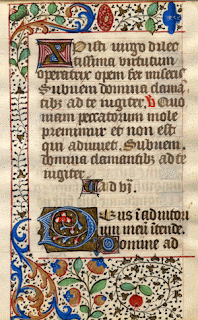 Xpisti uirgo dilec
tissima uirtutum
operatrix opem fer miseris
Subueni domina clama
tibus ad te iugiter. V Quo
niam peccatorum mole
premimur et non est
qui adiuuet. Subueni
domina clamantibus ad te
iugiter.
Ad VI.
Deus i ad iutori
um meu itende.
Domine ad